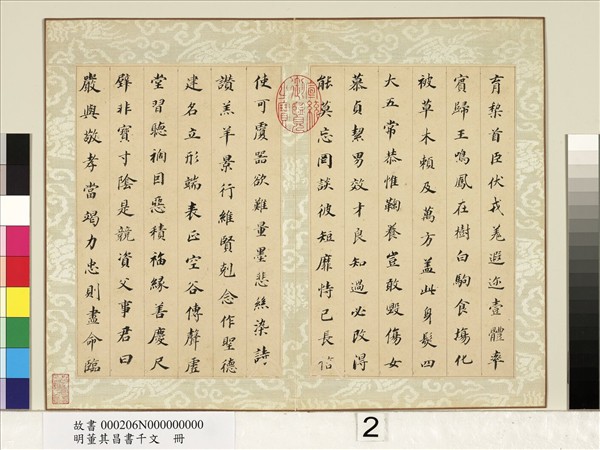 育黎首臣伏戎羌遐迩壹體率
賓歸王鳴鳳在樹白駒食場化
被草木賴及萬方蓋此身髮四
大五常恭惟鞠養豈敢毀傷女
慕貞絜男效才良知過必改得
能莫忘罔談彼短靡恃己長信
使可覆器欲難量墨悲絲染詩
讚羔羊景行維賢剋念作聖德
建名立形端表正空谷傳聲虛
堂習聽禍因惡積福緣善慶尺
璧非寶寸陰是競資父事君曰
嚴與敬孝當竭力忠則盡命臨
宣統御覽之寶
故書 000206N000000000
明董其昌書千文 冊
2